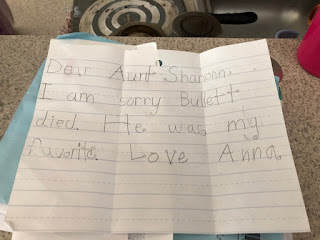 Dear Aunt Shannon,
I am sorry Bullett
died. He was my
favorite. Love Anna